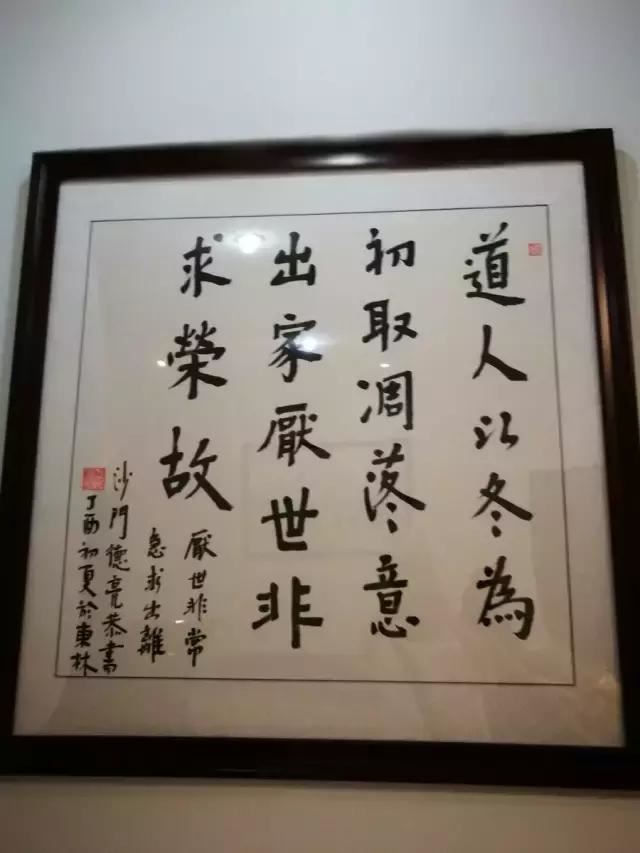 道人以冬為
初取凋落意
出家厭世非
求榮故
厭世非常
急求出離
沙門德亮恭書
丁酉初夏於東林